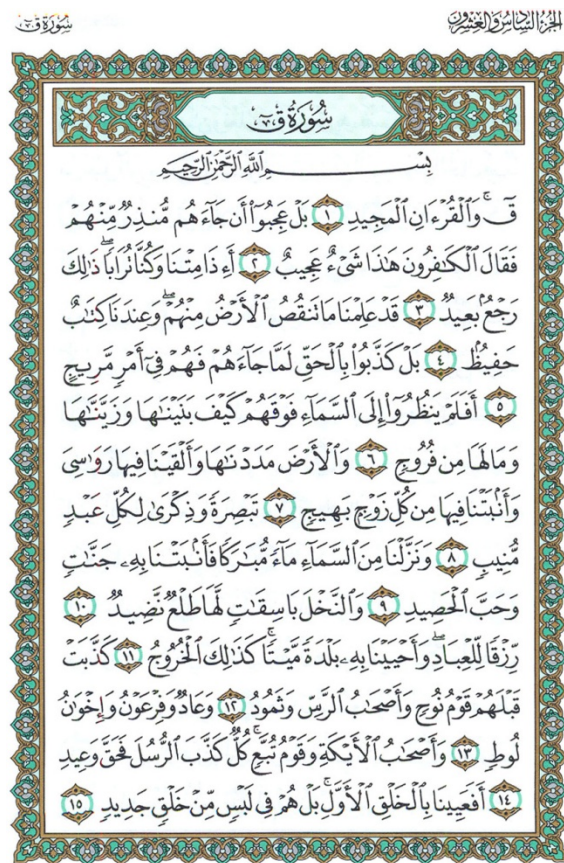 سُورَةُ قٓ
الجُزْءُ السَّادِسُ وَالعِشْرُونَ
سُورَةُ قٓ
بِسْمِ اللَّهِ الرَّحْمَٰنِ الرَّحِيمِ
قٓۚ وَالْقُرْءَانِ الْمَجِيدِ ١ بَلْ عَجِبُوٓا۟ أَن جَآءَهُم مُّنذِرٌ مِّنْهُمْ
فَقَالَ الْكَٰفِرُونَ هَٰذَا شَىْءٌ عَجِيبٌ ٢ أَءِذَا مِتْنَا وَكُنَّا تُرَابًاۖ ذَٰلِكَ
رَجْعٌۢ بَعِيدٌ ٣ قَدْ عَلِمْنَا مَا تَنقُصُ الْأَرْضُ مِنْهُمْۖ وَعِندَنَا كِتَٰبٌ
حَفِيظٌۢ ٤ بَلْ كَذَّبُوا۟ بِالْحَقِّ لَمَّا جَآءَهُمْ فَهُمْ فِىٓ أَمْرٍ مَّرِيجٍ
٥ أَفَلَمْ يَنظُرُوٓا۟ إِلَى السَّمَآءِ فَوْقَهُمْ كَيْفَ بَنَيْنَٰهَا وَزَيَّنَّٰهَا
وَمَا لَهَا مِن فُرُوجٍ ٦ وَالْأَرْضَ مَدَدْنَٰهَا وَأَلْقَيْنَا فِيهَا رَوَٰسِىَ
وَأَنۢبَتْنَا فِيهَا مِن كُلِّ زَوْجٍۭ بَهِيجٍ ٧ تَبْصِرَةً وَذِكْرَىٰ لِكُلِّ عَبْدٍ
مُّنِيبٍ ٨ وَنَزَّلْنَا مِنَ السَّمَآءِ مَآءً مُّبَٰرَكًا فَأَنۢبَتْنَا بِهِۦ جَنَّٰتٍ
وَحَبَّ الْحَصِيدِ ٩ وَالنَّخْلَ بَاسِقَٰتٍ لَّهَا طَلْعٌ نَّضِيدٌ ١٠
رِّزْقًا لِّلْعِبَادِۖ وَأَحْيَيْنَا بِهِۦ بَلْدَةً مَّيْتًاۚ كَذَٰلِكَ الْخُرُوجُ ١١ كَذَّبَتْ
قَبْلَهُمْ قَوْمُ نُوحٍ وَأَصْحَٰبُ الرَّسِّ وَثَمُودُ ١٢ وَعَادٌ وَفِرْعَوْنُ وَإِخْوَٰنُ
لُوطٍ ١٣ وَأَصْحَٰبُ الْأَيْكَةِ وَقَوْمُ تُبَّعٍۚ كُلٌّ كَذَّبَ الرُّسُلَ فَحَقَّ وَعِيدِ
١٤ أَفَعَيِينَا بِالْخَلْقِ الْأَوَّلِۚ بَلْ هُمْ فِى لَبْسٍ مِّنْ خَلْقٍ جَدِيدٍ ١٥